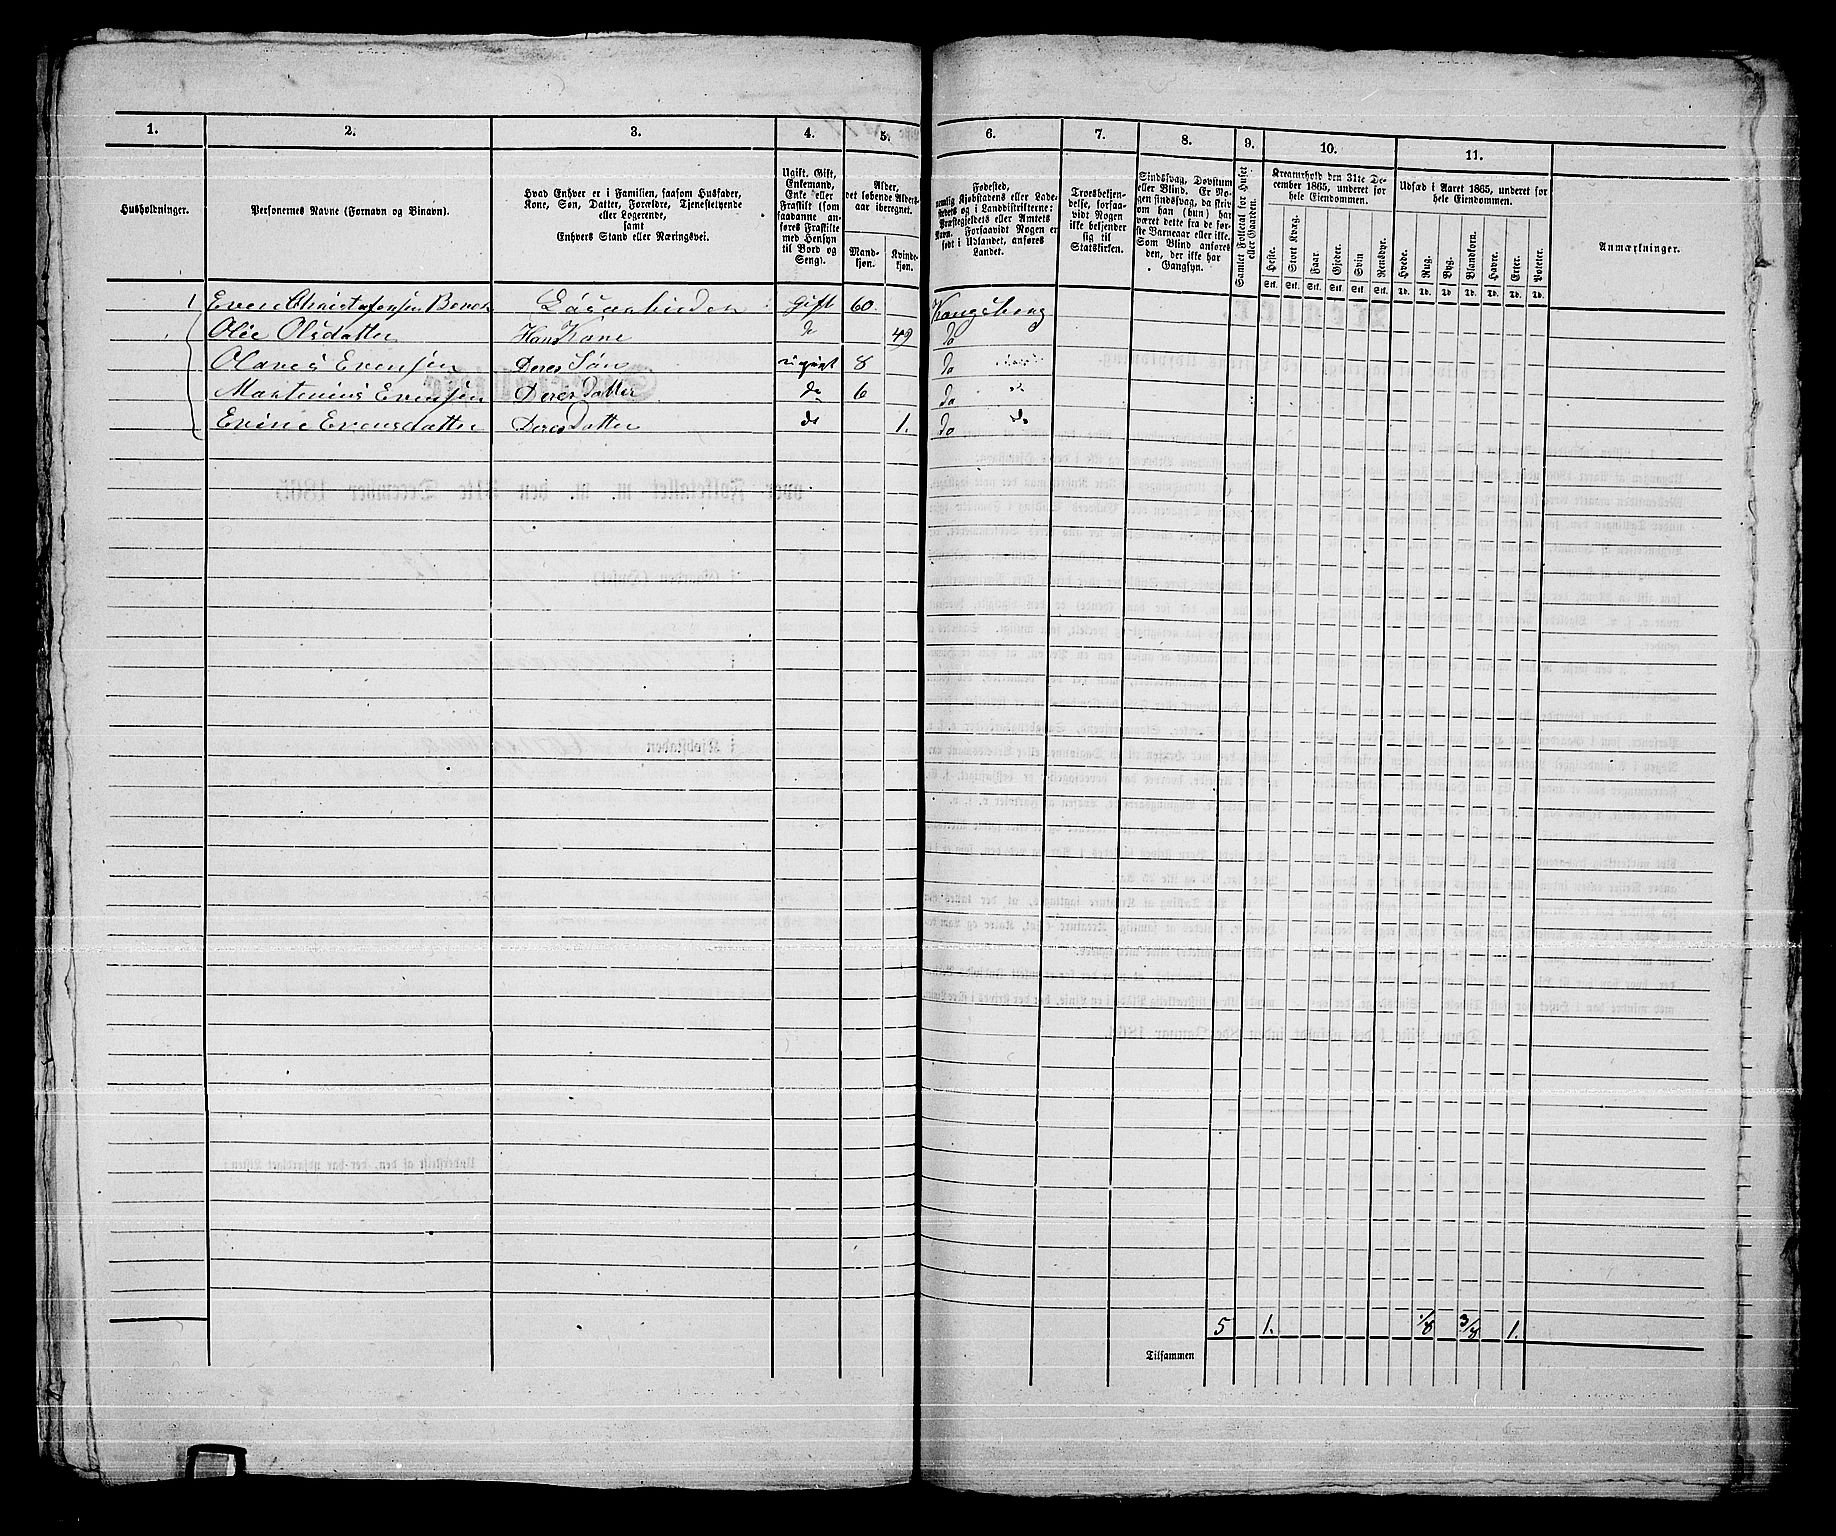 1. 2. 3. 4. 5. 6. 7. 8. 9. 10. 11.
Husholdninger.
Personernes Navne (Fornavn og Binavn).
Hvad Enhver er i Familien, saasom Husfader,
Kone, Søn, Datter, Forældre, Tjenestetyende
eller Logerende,
samt
Enhvers Stand eller Næringsvei.
Ugift. Gift,
Enkemand,
Enke eller
Fraskilt (som
saadanne an-
føres Fraskilte
med Hensyn
til Bord og
Seng).
Alder,
det løbende Alders-
aar iberegnet.
Mand-
kjøn.
Kvinde-
kjøn.
Fødested,
nemlig Kjøbstadens eller Lade-
stedets og i Landdistrikterne:
Præstegjeldets eller Amtets
Navn. Forsaavidt Nogen er
født i Udlandet, anføres
Landet.
Troesbekjen-
delse, forsaa-
vidt Nogen
ikke bekjender
sig til
Statskirken.
Sindssvag, Døvstum
eller Blind. Er No-
gen sindssvag, da skriv
om han (hun) har
været dette fra de før-
ste Barneaar eller ikke.
Som Blind anføres
den, der ikke har
Gangsyn.
Samlet Folketal for Huset
eller Gaarden.
Kreaturhold den 31te De-
cember 1865, underet for
hele Eiendommen.
Heste. Stort Kvæg. Faar. Gjeder. Svin Rensdyr.
Stk. Stk. Stk. Stk. Stk. Stk.
Udsæd i Aaret 1865, underet for
hele Eiendommen.
Hvede. Rug. Byg. Blandkorn. Havre. Erter. Poteter.
Td. Td. Td. Td. Td. Td. Td.
Anmærkninger.
1 Even Christofersen Gift 60. Kongsberg
Olie Olsdatter Hans Kone do 49 do
Olaves Evensen Deres Søn ugift 8 do
Martenius Evensen Deres Datter do 6 do
Evine Evensdatter Deres Datter do 1. do do
5 1. 1/8 3/8 1.
Tilsammen